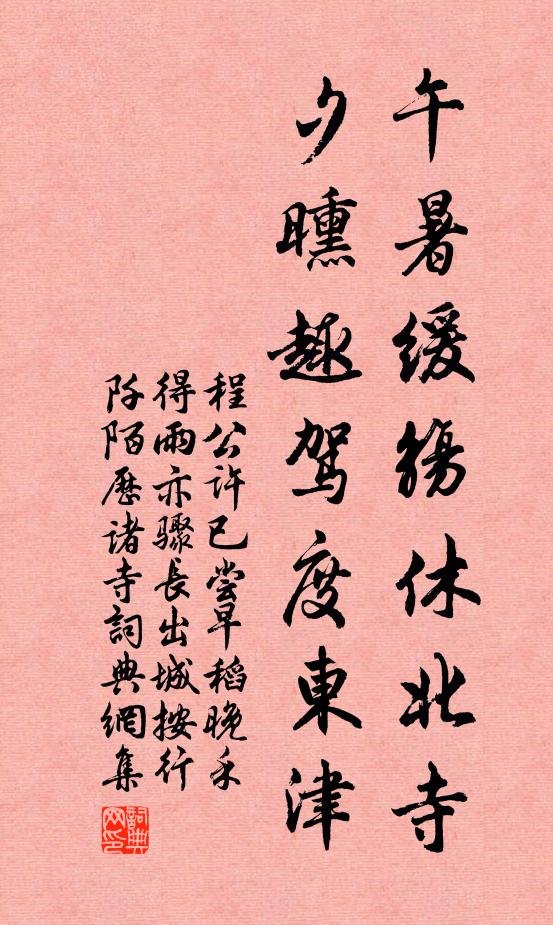 午暑缓觞休北寺
夕曛趣驾度東津
程公许已尝早稻晚禾
得雨亦骤長出城按行
阡陌歷诸寺詞典網集
詞典网印